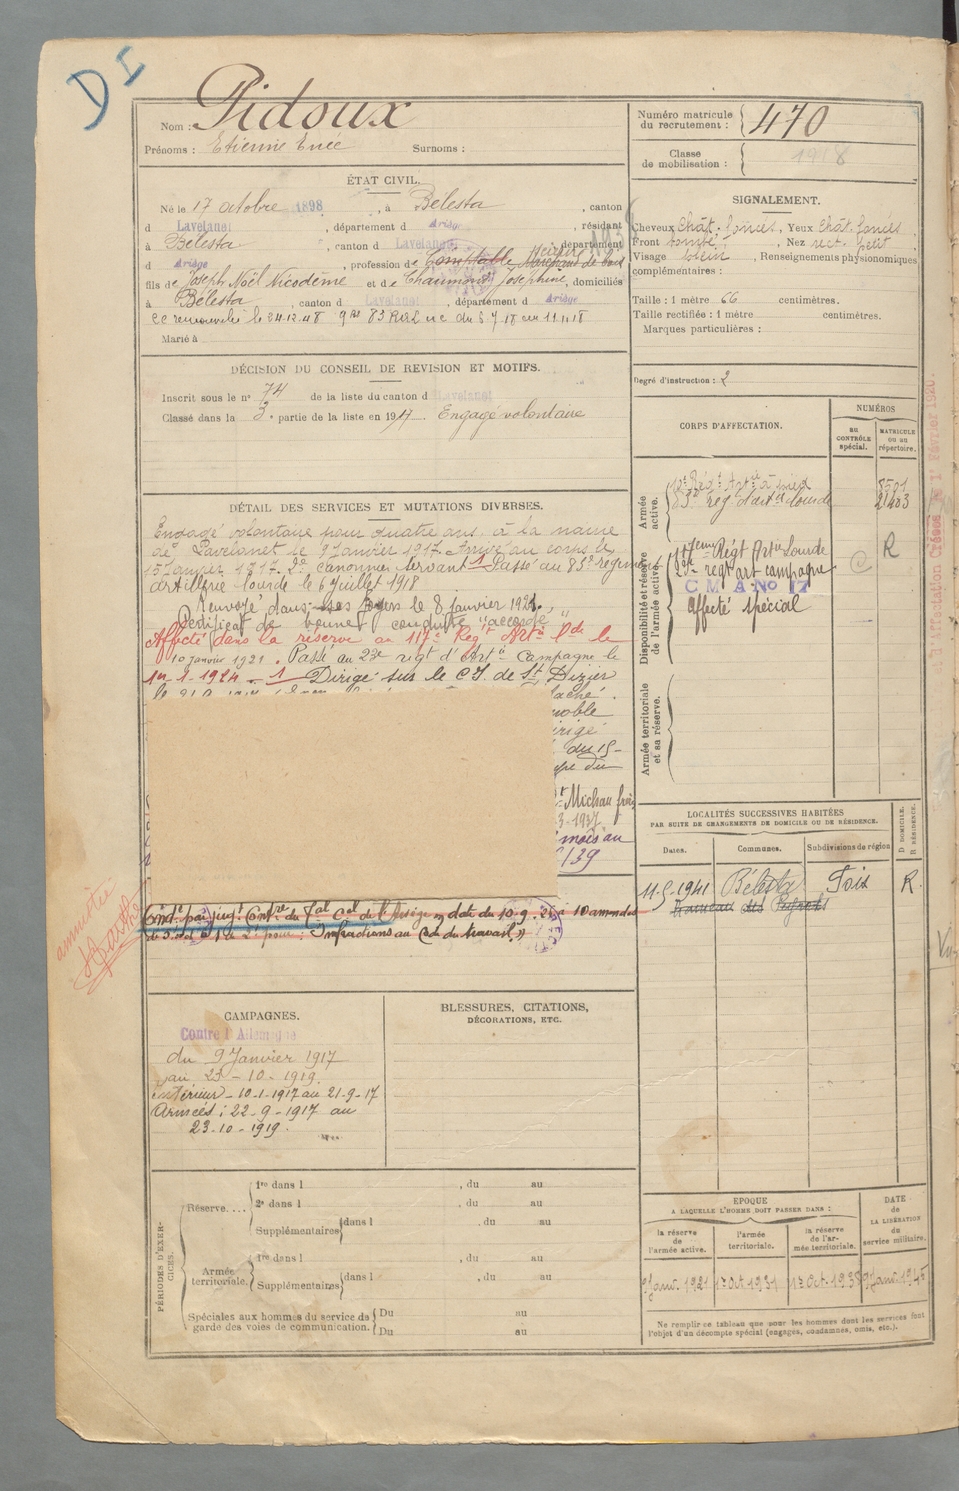 DI
Nom : Pidoux
Prénoms : Etienne Surnoms :
Numéro matricule du recrutement : 470
Classe de mobilisation : 1918
ÉTAT CIVIL.
Né le 17 octobre 1898, à Bélesta, canton
d Lavelanet, département d Ariège, résidant
à Bélesta, canton d Lavelanet, département
d Ariège, profession de Comptable
fils de Joseph Noël Nicodème et de Chaumont Joséphine, domiciliés
à Bélesta, canton d Lavelanet, département d Ariège
Marié à
SIGNALEMENT.
Cheveux Chât. foncés, Yeux Chât. foncés
Front bombé, Nez rect. petit
Visage plein, Renseignements physionomiques
complémentaires :
Taille : 1 mètre 66 centimètres.
Taille rectifiée : 1 mètre centimètres.
Marques particulières :
Degré d'instruction : 2
DÉCISION DU CONSEIL DE REVISION ET MOTIFS.
Inscrit sous le n° 74 de la liste du canton d Lavelanet
Classé dans la 3e partie de la liste en 1917. Engagé volontaire
DÉTAIL DES SERVICES ET MUTATIONS DIVERSES.
Engagé volontaire pour quatre ans, à la mairie
de Lavelanet le 9 Janvier 1917. Arrivé au corps le
15 Janvier 1917. 2e canonnier servant 1 Passé au 83e régiment
artillerie lourde le 6 juillet 1918
Renvoyé dans ses foyers le 8 janvier 1921.
Certificat de bonne conduite "accordé"
Affecté dans la réserve au 117e Régt Artie Lde le
10 janvier 1921. Passé au 23e régt d'Artie Campagne le
1er-1-1924 - 1 Dirigé sur le C.I. de St Dizier
taché.
noble
irigé
du 15-
Michau
3-1937
mois au
39
Condé par jugt Contre du Tal Cel de l'Ariège en date du 10-9-
Infractions au Code du travail
amnistié
CORPS D'AFFECTATION.
NUMÉROS
au CONTRÔLE spécial.
MATRICULE ou au répertoire.
Armée active.
10e Régt Artie à pied 8501
83e rég. d'artie lourde 21403
Disponibilité et réserve de l'armée active.
117eme Régt Artie Lourde R
23e régt art campagne
C M A No 17
affecté spécial
Armée territoriale et sa réserve.
LOCALITÉS SUCCESSIVES HABITÉES
PAR SUITE DE CHANGEMENTS DE DOMICILE OU DE RÉSIDENCE.
Dates.
Communes.
Subdivisions de région
D DOMICILE.
R RÉSIDENCE.
11-5-1941 Bélesta Foix R.
CAMPAGNES.
Contre l'Allemagne
du 9 Janvier 1917
au 23-10-1919.
Intérieur - 10-1-1917 au 21-9-17
Armées : 22-9-1917 au
23-10-1919.
BLESSURES, CITATIONS,
DÉCORATIONS, ETC.
PÉRIODES D'EXERCICES.
Réserve....
1re dans l , du au
2e dans l , du au
Supplémentaires dans l , du au
Armée territoriale.
1re dans l , du au
Supplémentaires dans l , du au
Spéciales aux hommes du service de garde des voies de communication.
Du au
Du au
EPOQUE
A LAQUELLE L'HOMME DOIT PASSER DANS :
la réserve de l'armée active.
l'armée territoriale.
la réserve de l'armée territoriale.
DATE de LA LIBÉRATION du service militaire.
9 Janv. 1921
1er Oct. 1931
1er Oct. 1938
9 Janv. 1945
Ne remplir ce tableau que pour les hommes dont les services font
l'objet d'un décompte spécial (engagés, condamnés, omis, etc.).